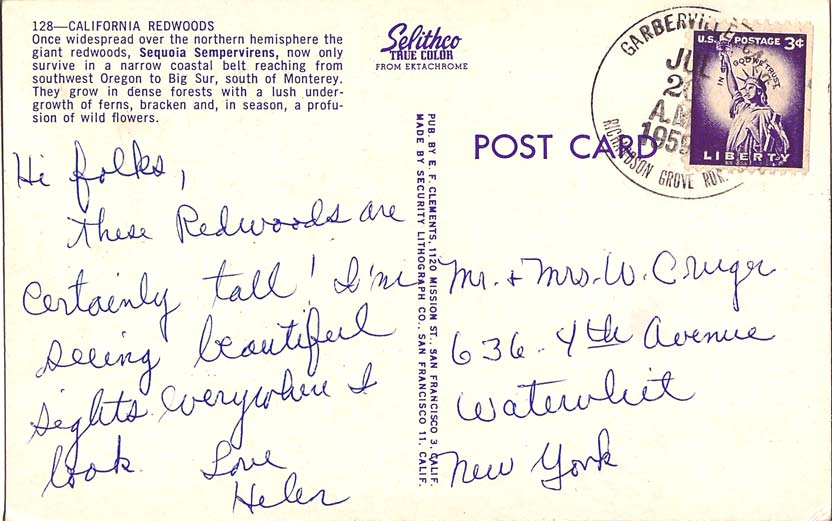 128—CALIFORNIA REDWOODS
Once widespread over the northern hemisphere the
giant redwoods, Sequoia Sempervirens, now only
survive in a narrow coastal belt reaching from
southwest Oregon to Big Sur, south of Monterey.
They grow in dense forests with a lush under-
growth of ferns, bracken and, in season, a profu-
sion of wild flowers.
Selithco
TRUE COLOR
FROM EKTACHROME
POST CARD
GARBERVILLE
JUL
A.M.
1959
RICHARDSON GROVE RUR.
U.S. POSTAGE 3¢
IN GOD WE TRUST
LIBERTY
Hi folks,
These Redwoods are
certainly tall! I'm
seeing beautiful
sights everywhere I
look. Love
Helen
PUB. BY E. F. CLEMENTS, 1120 MISSION ST. SAN FRANCISCO 3, CALIF.
MADE BY SECURITY LITHOGRAPH CO., SAN FRANCISCO 11, CALIF.
Mr. + Mrs. W. Cruger
636 - 4th Avenue
Watervliet
New York